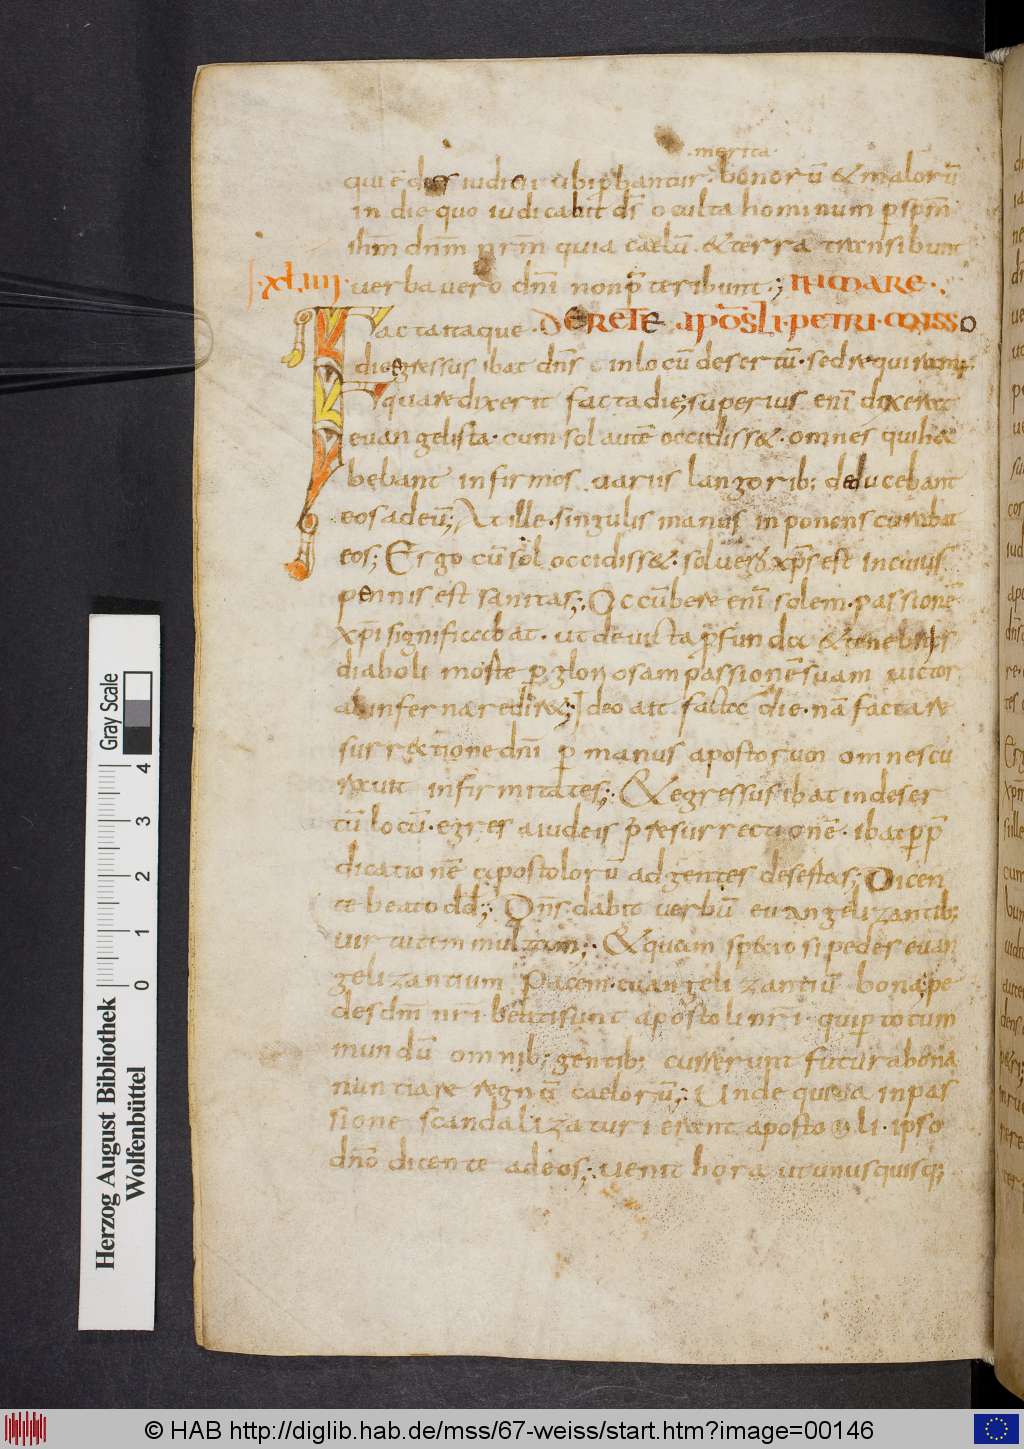 merita
qui ē dies iudicii ubi pband̄tur bonorū & malorū
in die quo iudicabit dī oculta hominum p spm̄
ihm̄ dnm̄ nrm̄ quia caelū & terra transibunt
·xliiii· uerba uero dnī non p̄teribunt; in mare·
Facta itaque· de rete apōsli·petri·misso
die egressus ibat dn̄s in locū desertū· sed requiramus
quare dixerit facta die; superius enī dixerat
euangelista· cum sol autē occidiss&· omnes qui ha
bebant infirmos uariis langorib; deducebant
eos ad eū; At ille· singulis manus inponens curabat
eos; Ergo cū sol occidiss&· sol uerus xp̄s est in cuius
pennis est sanitas; Occūbere enī solem· passionē
xpī significabat· ut deuicta p̄funda & tenebras
diaboli morte p gloriosam passionē suam uictor
ab inferna redir&; Ideo ait facta die· nā facta re
surrectione dnī p manus apostorum omnes cu
rauit infirmitates; & egressus ibat in deser
tū locū· egres a iudeis p̄ resurrectionē· ibat p p̄
dicationē apostolorū ad gentes desertas; Dicen
te beato dd̄; Dn̄s dabit uerbū euangelizantib;
uirtutem multam; & quam speciosi pedes euan
gelizantium pacem euangelizantiū bona pe
des dnī nr̄i· beati sunt apostoli nr̄i· qui p totum
mundū omnib; gentib; currerunt futura bona
nuntiare regnū caelorū; Unde quia in pas
sione scandalizaturi erant apostoli· ipso
dnō dicente ad eos; uenit hora ut unusquisq;
Gray Scale
4
3
2
1
0
Herzog August Bibliothek
Wolfenbüttel
© HAB http://diglib.hab.de/mss/67-weiss/start.htm?image=00146